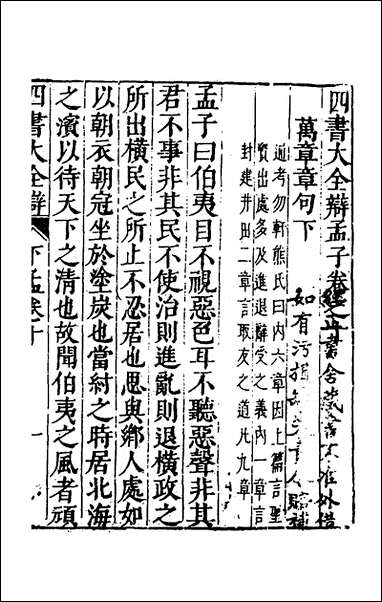 四書大全辯孟子卷之十
經正書舍藏書不准外借
萬章章句下
如有污損
通考勿軒熊氏曰內六章因上篇言聖
賢出處多及進退辭受之義內一章言
封建井田二章言取友之道凡九章
孟子曰伯夷目不視惡色耳不聽惡聲非其
君不事非其民不使治則進亂則退橫政之
所出橫民之所止不忍居也思與鄉人處如
以朝衣朝冠坐於塗炭也當紂之時居北海
之濱以待天下之清也故聞伯夷之風者頑
四書大全辯 下孟卷十 一